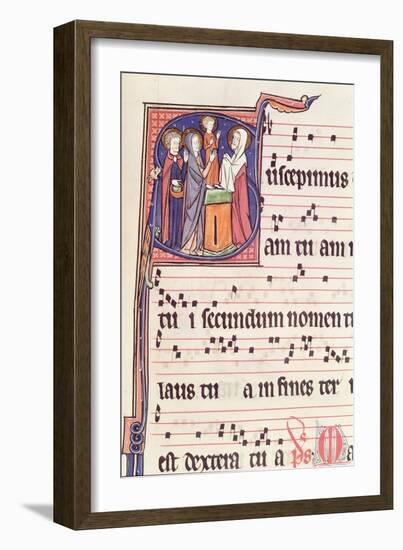 Suscepimus
am tu am i
tu i secundum nomen tu
laus tu a in fines ter
est dextera tu a ps: Ma